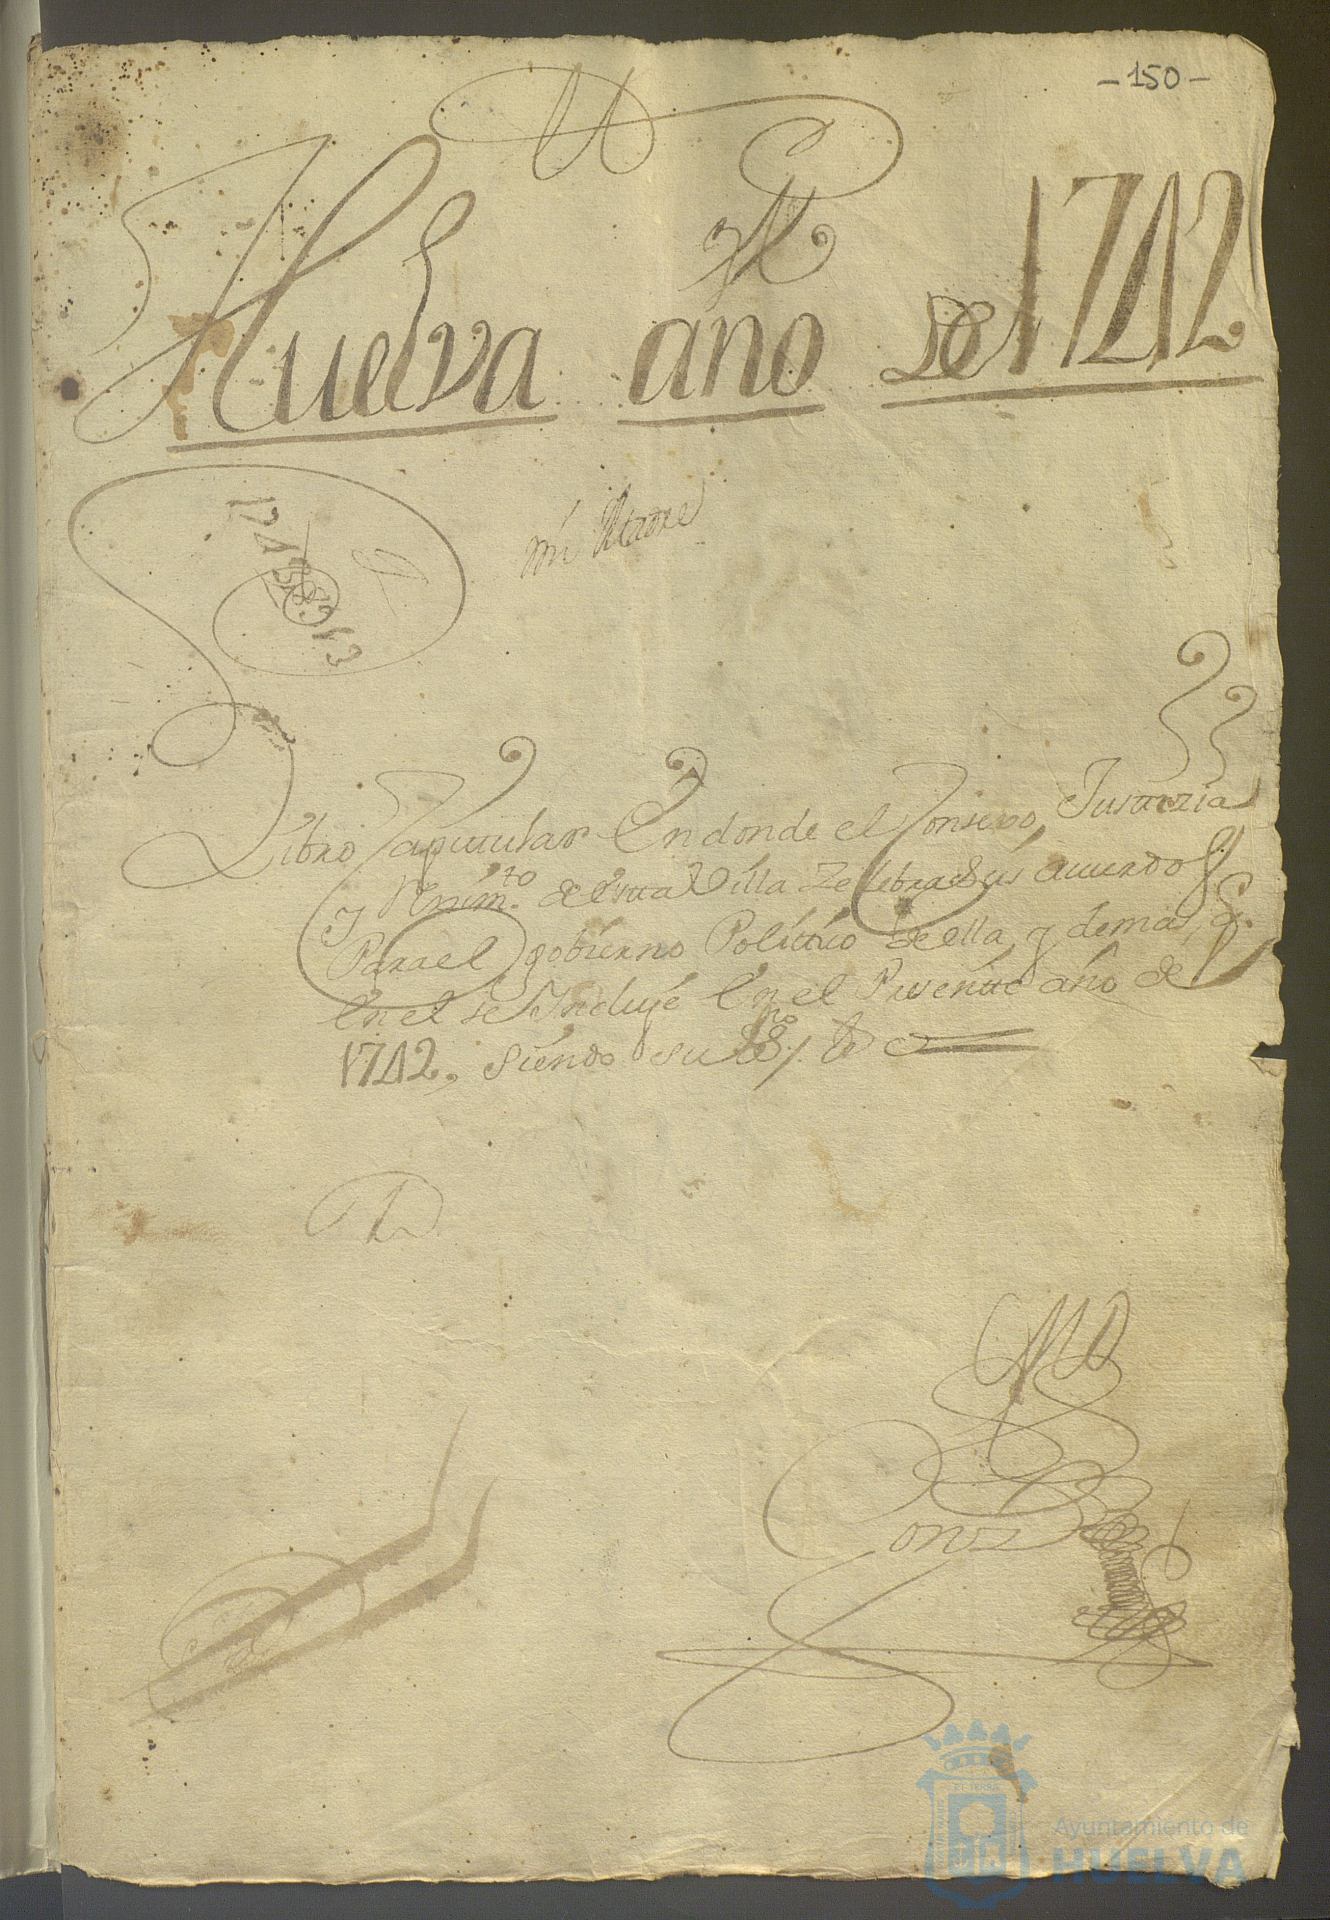 -150-
M
Huelva año de 1742
mi Madre
1742
Libro Capitular En donde el Consexo, Justizia
Y Reximto. de esta Villa Zelebra sus acuerdos
Para el gobierno Politico de ella, y demas, q.
En el se Incluye En el Presente año de
1742, siendo su Esno.
Ayuntamiento de
HUELVA